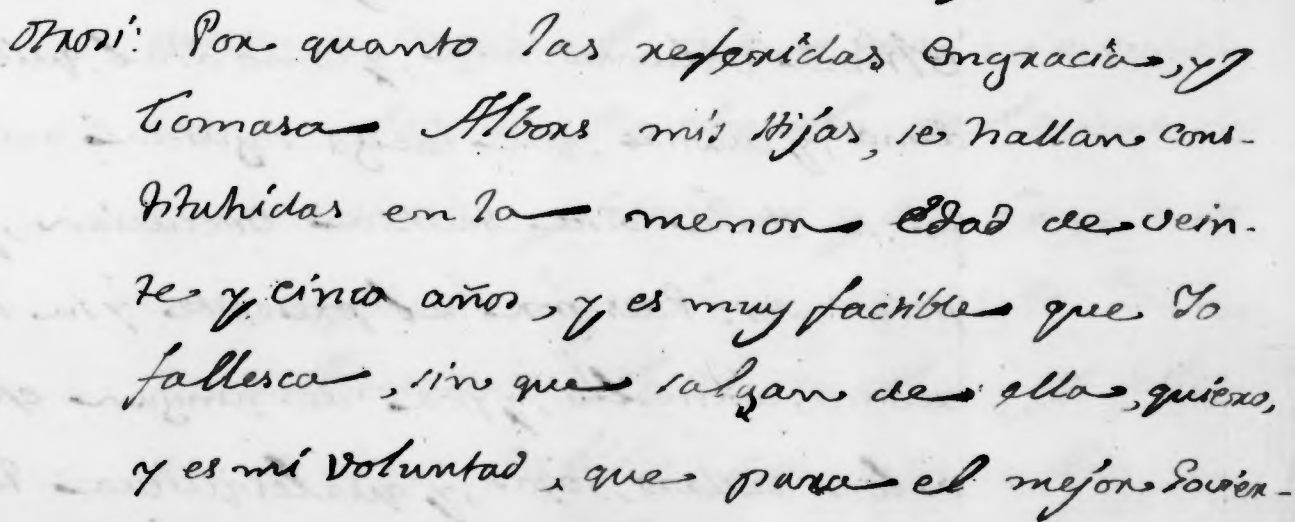 Otrosi: Por quanto las referidas Engracia, y
Tomasa Albors mis Hijas, se hallan cons-
tituhidas en la menor Edad de vein-
te y cinco años, y es muy factible que Yo
fallesca, sin que salgan de ella, quiero,
y es mi voluntad, que para el mejor Govier-